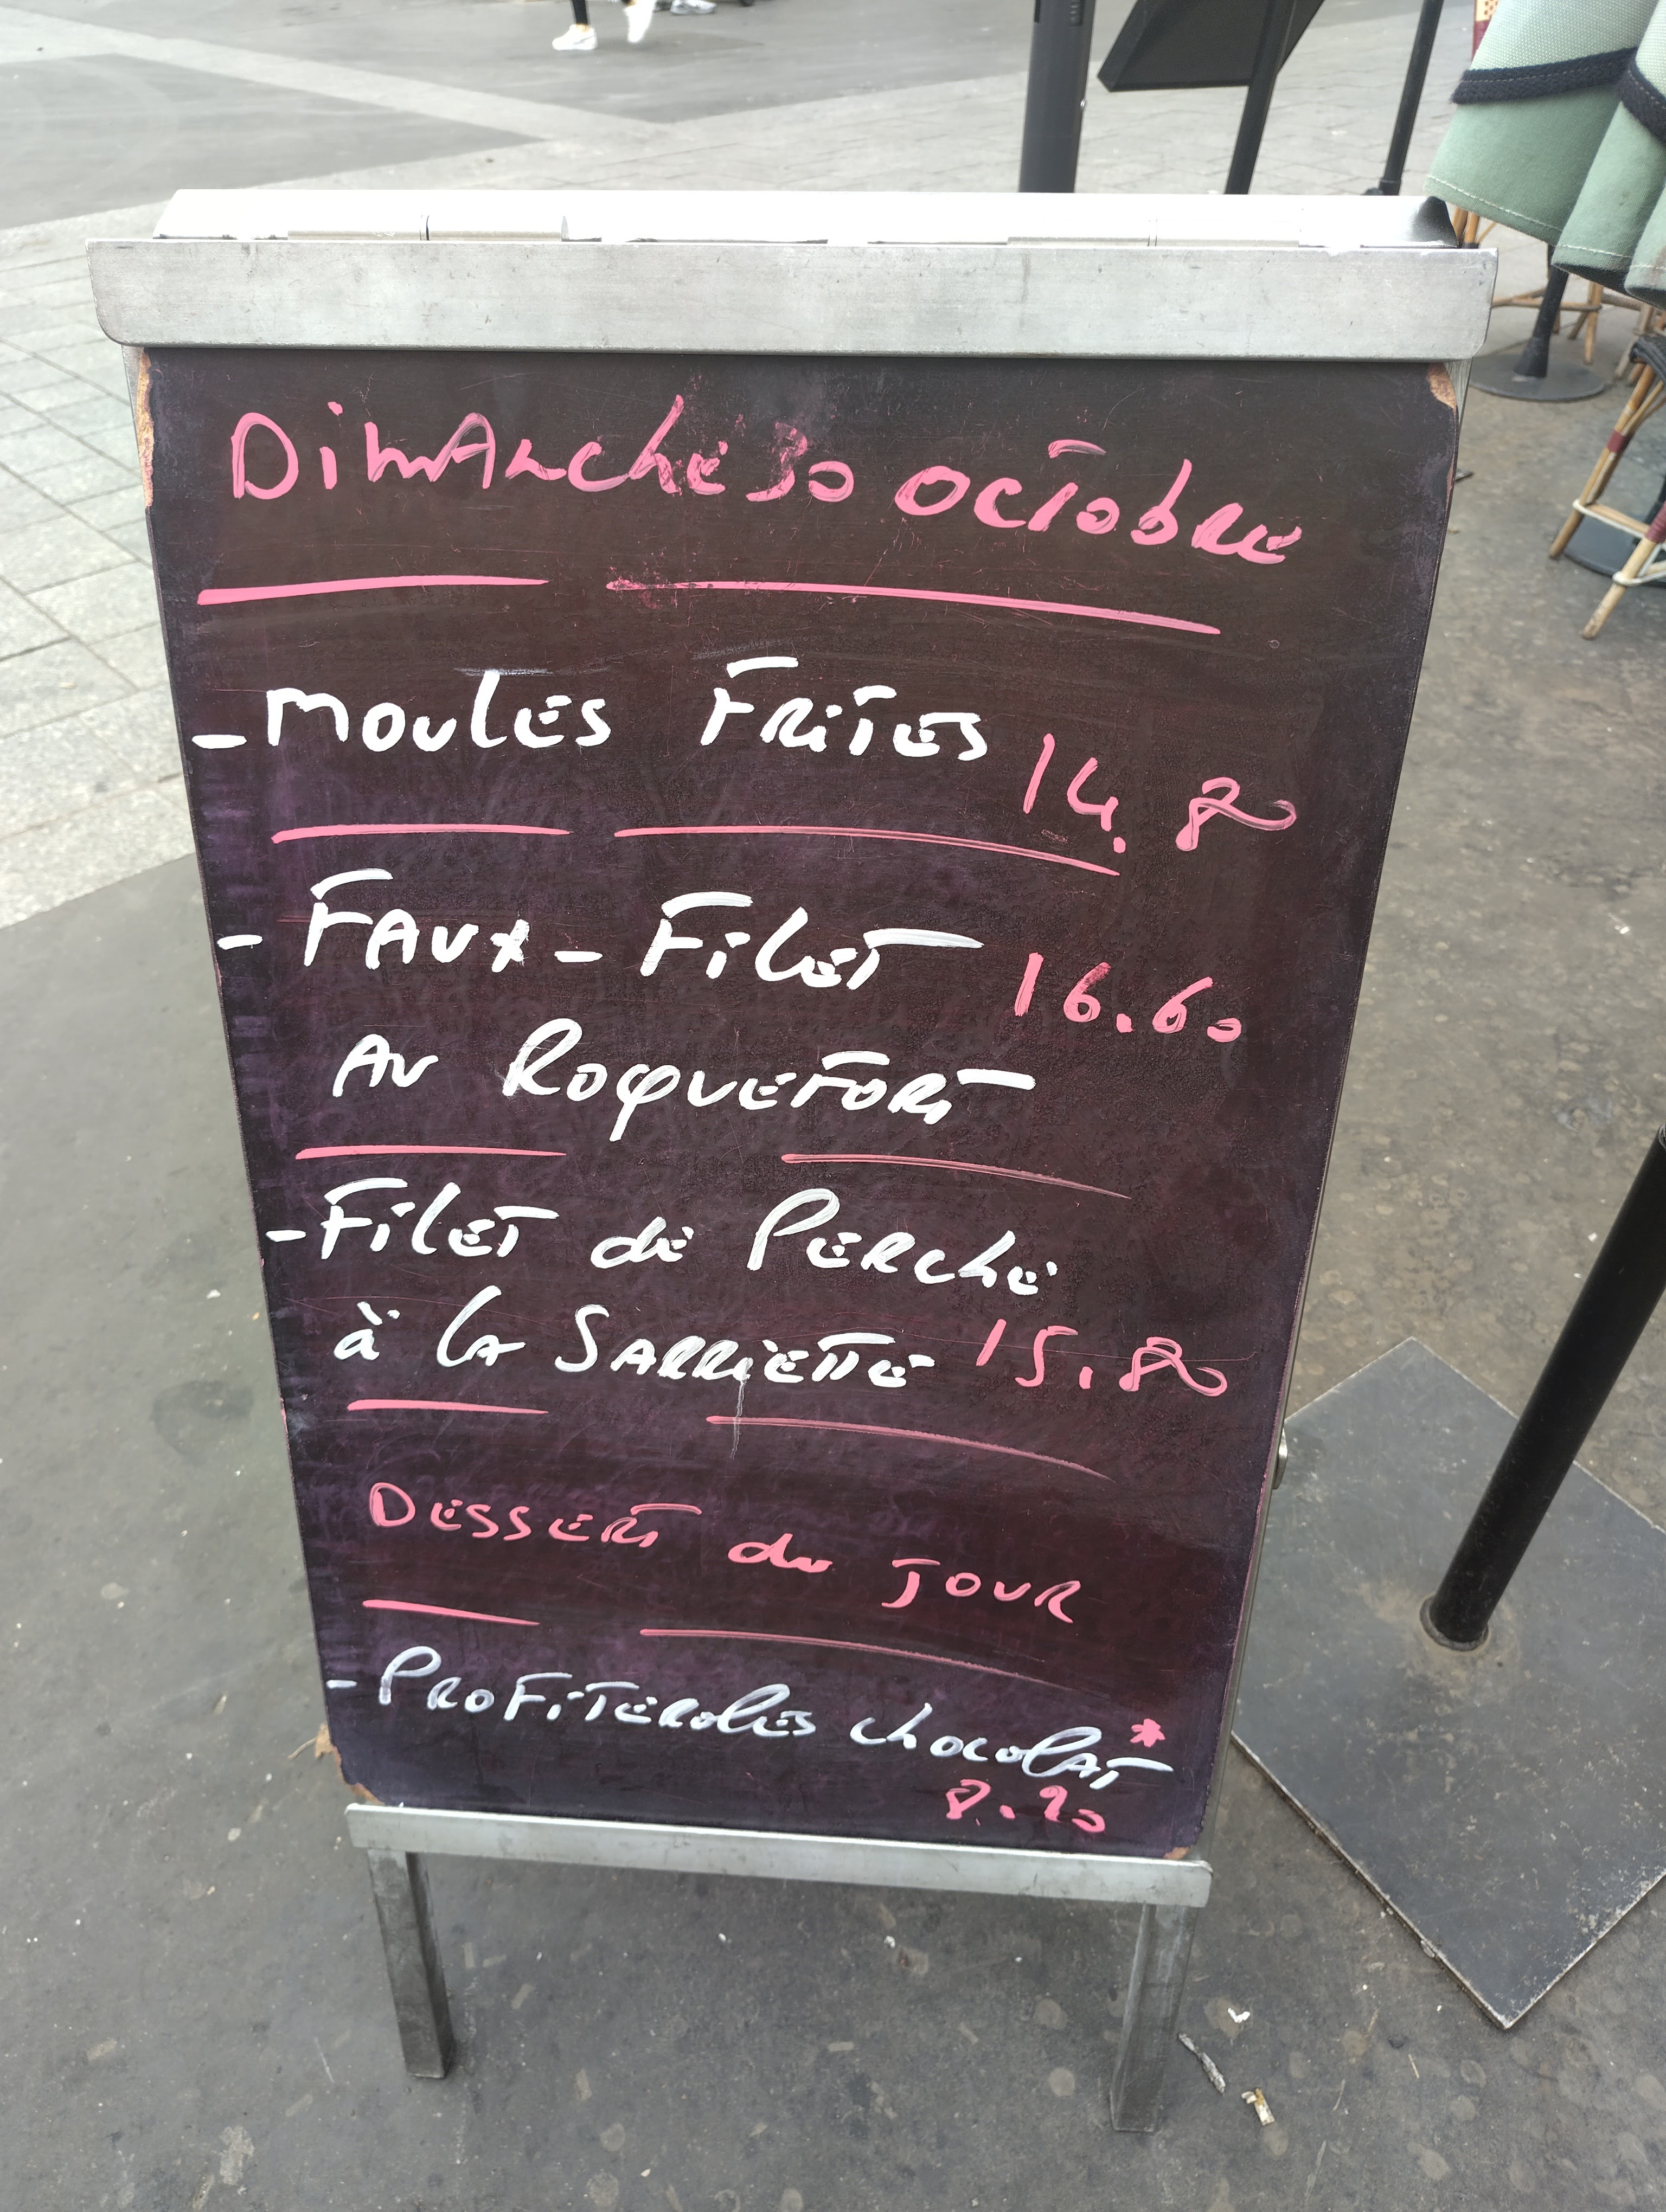 Dimanche 30 octobre
- Moules Frites 14.80
- Faux-Filet 16.60
au Roquefort
- Filet de Perche
à la Sarriette 15.80
Dessert du jour
- Profiteroles chocolat *
8.20